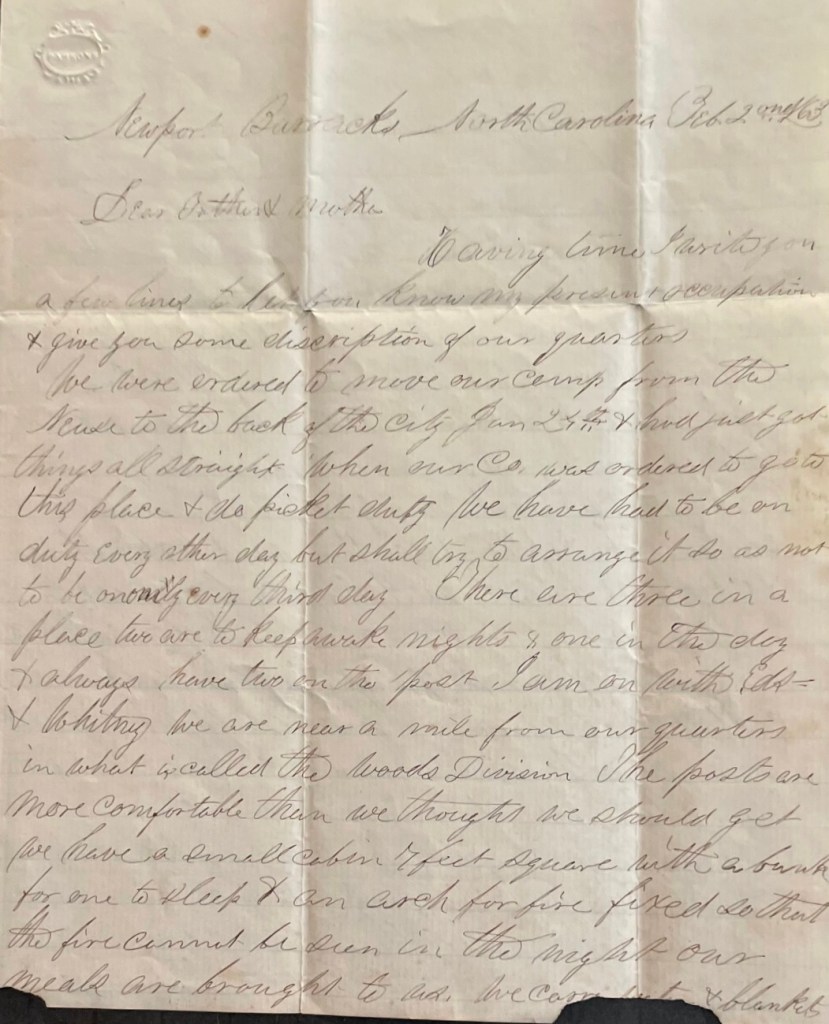 Newport Barracks, North Carolina Feb. 2ond /63
Dear Father & Mother
Having time I write you
a few lines to let you know my present occupation
& give you some discription of our quarters
We were ordered to move our camp from the
Neuse to the back of the city Jan 24th & had just got
things all straight when our Co. was ordered to go to
this place & do picket duty We have had to be on
duty every other day but shall try to arrange it so as not
to be on only every third day There are three in a
place two are to keep awake nights & one in the day
& always have two on the post I am on with Eds-
& Whitney we are near a mile from our quarters
in what is called the Woods Division The posts are
more comfortable than we thought we should get
We have a small cabin 7 feet square with a bunk
for one to sleep & an arch for fire fixed so that
the fire cannot be seen in the night our
meals are brought to us. We carry & blankets